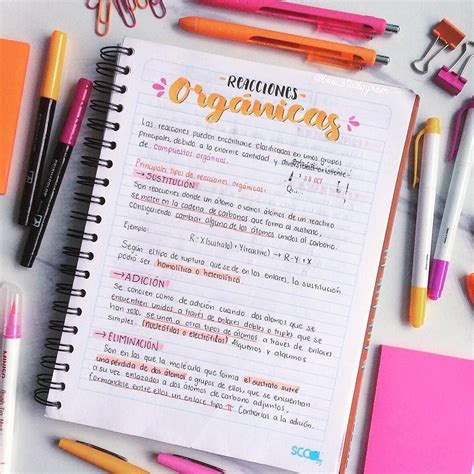 REACCIONES
Orgánicas
Las reacciones pueden encontrarse clasificadas en unos grupos
principales, debido a la enorme cantidad y diversidad existente
de compuestos orgánicos.
Principales tipos de reacciones orgánicas:
→SUSTITUCIÓN
Son reacciones donde un átomo o varios átomos de un reactivo
se meten en la cadena de carbonos que forma al sustrato,
consiguiendo cambiar alguno de los átomos unidos al carbono.
Ejemplo:
R-X(sustrato) + Y(reactivo) → R-Y + X
Según el tipo de ruptura que se de en los enlaces, la sustitución
podrá ser homolítica o heterolítica.
→ADICIÓN
Se conocen como de adición cuando dos átomos que se
encuentren unidos a través de enlaces dobles o triples que se
han roto, se unen a otros tipos de átomos a través de enlaces
simples. (nucleófilos o electrófilos) Alquenos y alquinos
→ELIMINACIÓN
Son en las que la molécula que forma el sustrato sufre
una pérdida de dos átomos o grupos de ellos, que se encuentran
a su vez enlazados a dos átomos de carbono adjuntos,
formandose entre ellos un enlace tipo π. Contrarias a la adición.
TOMBOW